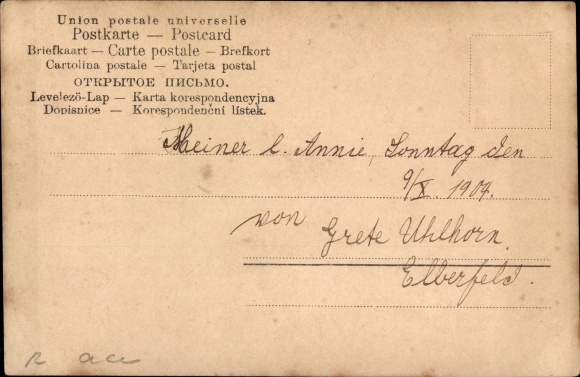 Union postale universelle
Postkarte — Postcard
Briefkaart — Carte postale — Brefkort
Cartolina postale — Tarjeta postal
ОТКРЫТОЕ ПИСЬМО.
Levelezö-Lap — Karta korespondencyjna
Dopisnice — Korespondenčni listek.
Meiner l. Annie, Sonntag den
9/X. 1904.
von
Grete Uhlhorn.
Elberfeld.